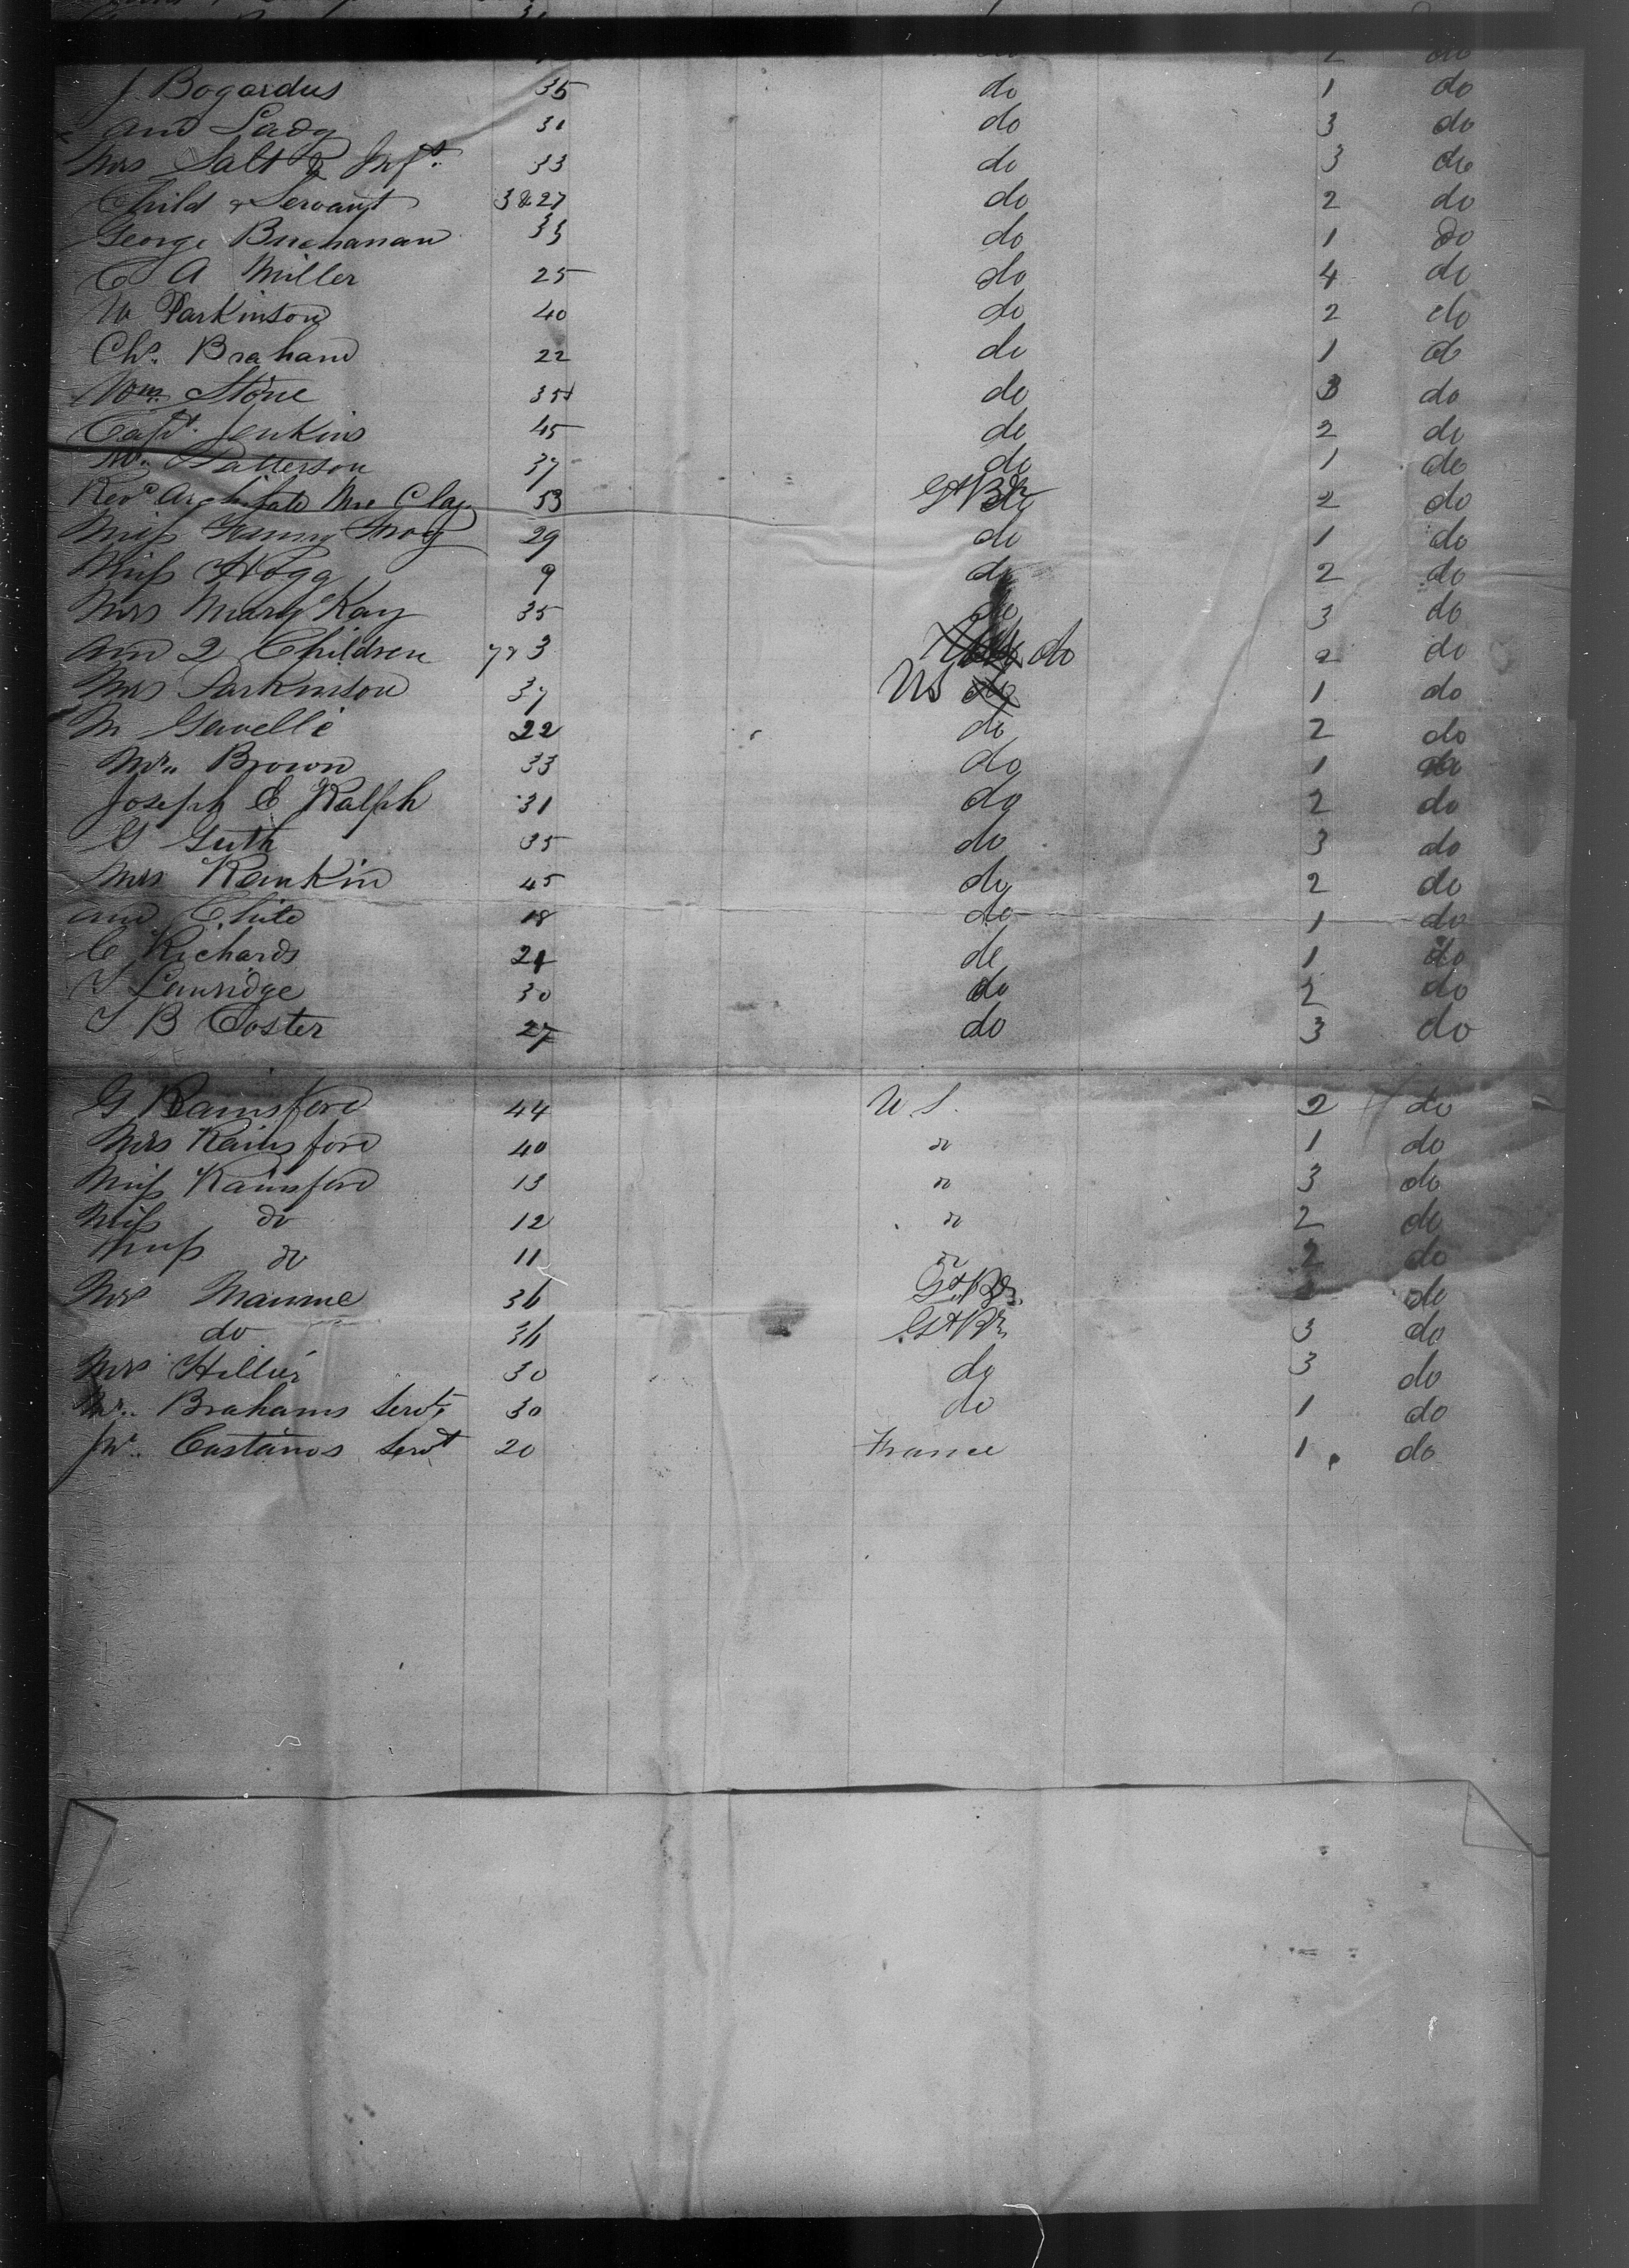 2 do
J Bogardus 35 do 1 do
and Lady 31 do 3 do
Mrs Salt & Inft. 33 do 3 do
Child & Servant 3 & 27 do 2 do
George Buchanan 33 do 1 do
C A Miller 25 do 4 do
W Parkinson 40 do 2 do
Chs. Braham 22 do 1 do
Wm. Stone 35 do 3 do
Capt. Jenkins 45 do 2 do
Mr. Patterson 37 do 1 do
Revd 53 Gt Br 2 do
Miss Fanny 29 do 1 do
Miss Hogg 9 do 2 do
Mrs Mary Kay 35 do 3 do
and 2 Children 7 & 3 do 2 do
Mrs Parkinson 37 US 1 do
M 22 do 2 do
Mr. Brown 33 do 1 do
Joseph E Ralph 31 do 2 do
G Guth 35 do 3 do
Mrs Rankin 45 do 2 do
and Child 18 do 1 do
C Richards 21 do 1 do
30 do 2 do
B Coster 27 do 3 do
G Rainsford 44 U.S. 2 do
Mrs Rainsford 40 do 1 do
Miss Rainsford 13 do 3 do
Miss do 12 do 2 do
Miss do 11 do 2 do
Mr 36 Gt. Br. do
do 36 Gt Br. 3 do
Mrs Hillier 30 do 3 do
Mr. Brahams Servt. 30 do 1 do
Castanos Servt 20 France 1 do